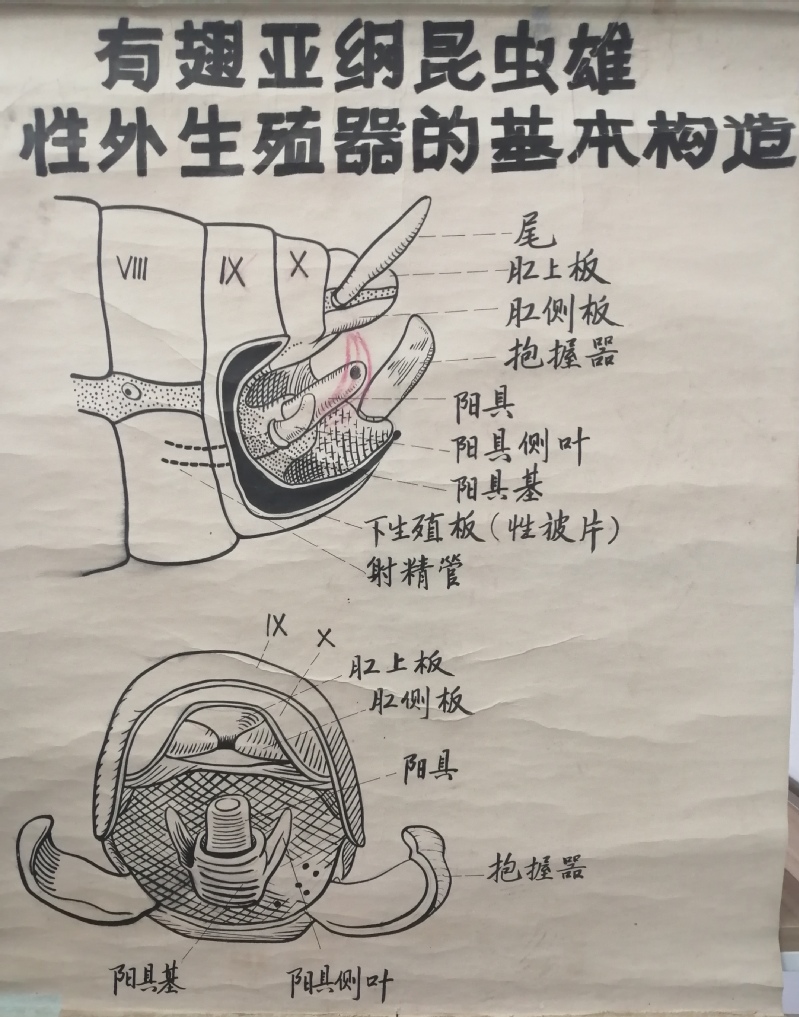 有翅亚纲昆虫雄
性外生殖器的基本构造
VIII
IX
X
尾
肛上板
肛侧板
抱握器
阳具
阳具侧叶
阳具基
下生殖板(性被片)
射精管
IX
X
肛上板
肛侧板
阳具
抱握器
阳具基
阳具侧叶